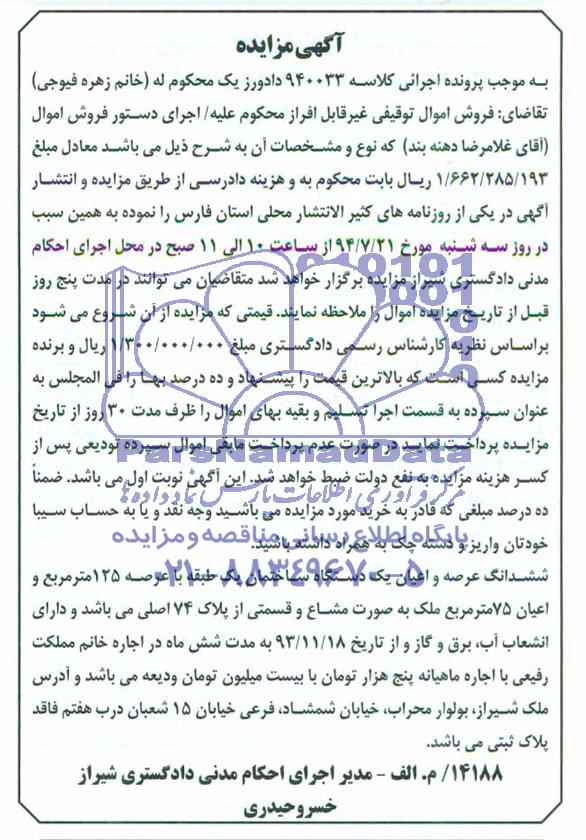 آگهی مزایده
به موجب پرونده اجرائی کلاسه ۹۴۰۰۳۳ دادورز یک محکوم له (خانم زهره فیوجی)
تقاضای: فروش اموال توقیفی غیرقابل افراز محکوم علیه/ اجرای دستور فروش اموال
(آقای غلامرضا دهنه بند) که نوع و مشخصات آن به شرح ذیل می باشد معادل مبلغ
۱/۶۶۲/۲۸۵/۱۹۳ ریال بابت محکوم به و هزینه دادرسی از طریق مزایده و انتشار
آگهی در یکی از روزنامه های کثیر الانتشار محلی استان فارس را نموده به همین سبب
در روز سه شنبه مورخ ۹۴/۷/۲۱ از ساعت ۱۰ الی ۱۱ صبح در محل اجرای احکام
مدنی دادگستری شیراز مزایده برگزار خواهد شد متقاضیان می توانند در مدت پنج روز
قبل از تاریخ مزایده اموال را ملاحظه نمایند. قیمتی که مزایده از آن شروع می شود
براساس نظریه کارشناس رسمی دادگستری مبلغ ۱/۳۰۰/۰۰۰/۰۰۰ ریال و برنده
مزایده کسی است که بالاترین قیمت را پیشنهاد و ده درصد بها را فی المجلس به
عنوان سپرده به قسمت اجرا تسلیم و بقیه بهای اموال را ظرف مدت ۳۰ روز از تاریخ
مزایده پرداخت نماید در صورت عدم پرداخت مابقی اموال سپرده تودیعی پس از
ParsNamadData
کسر هزینه مزایده به نفع دولت ضبط خواهد شد. این آگهی نوبت اول می باشد. ضمناً
مرکز فرآوری اطلاعات پارس نماد داده ها
ده درصد مبلغی که قادر به خرید مورد مزایده می باشید وجه نقد و یا به حساب سیبا
پایگاه اطلاع رسانی مناقصه و مزایده
خودتان واریز و دسته چک به همراه داشته باشید.
۰۲۱-۸۸۳۴۹۶۷۰-۵
ششدانگ عرصه و اعیان یک دستگاه ساختمان یک طبقه با عرصه ۱۲۵مترمربع و
اعیان ۷۵مترمربع ملک به صورت مشاع و قسمتی از پلاک ۷۴ اصلی می باشد و دارای
انشعاب آب، برق و گاز و از تاریخ ۹۳/۱۱/۱۸ به مدت شش ماه در اجاره خانم مملکت
رفیعی با اجاره ماهیانه پنج هزار تومان با بیست میلیون تومان ودیعه می باشد و آدرس
ملک شیراز، بولوار محراب، خیابان شمشاد، فرعی خیابان ۱۵ شعبان درب هفتم فاقد
پلاک ثبتی می باشد.
۱۴۱۸۸/ م. الف - مدیر اجرای احکام مدنی دادگستری شیراز
خسرو حیدری